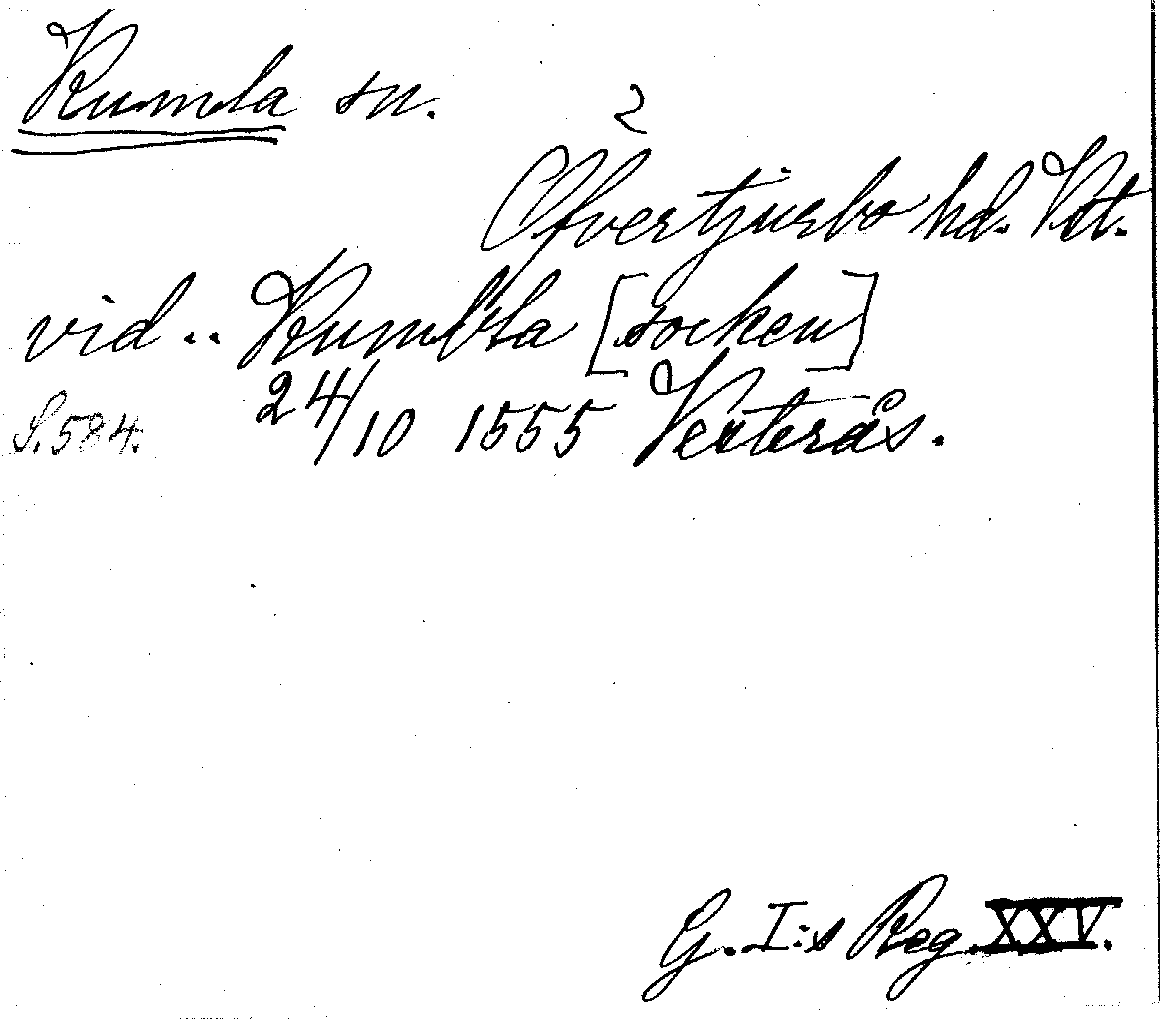 Kumla sn.
2
Ofvertjurbo hd. Vstl.
vid .. Kumbla [socken]
S. 584. 24/10 1555 Västerås.
G. I:s Reg. XXV.